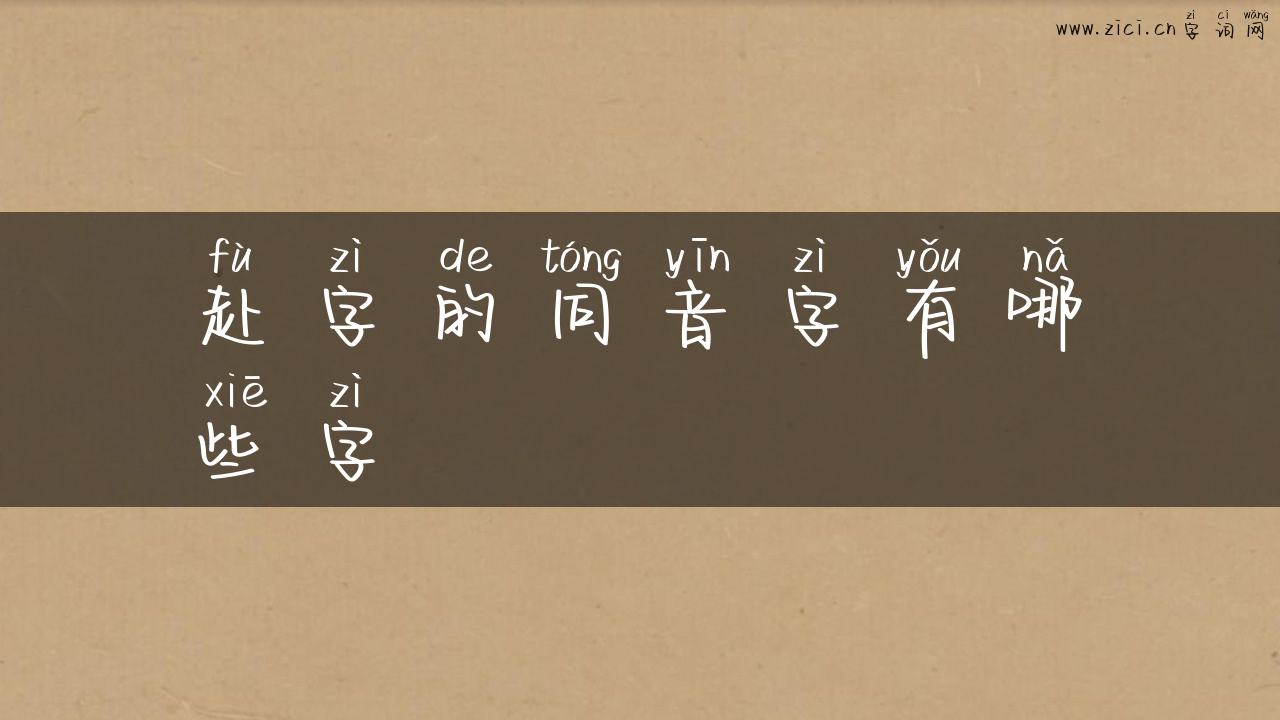 zì cí wǎng
www.zici.cn 字 词 网
fù zì de tóng yīn zì yǒu nǎ
赴 字 的 同 音 字 有 哪
xiē zì
些 字